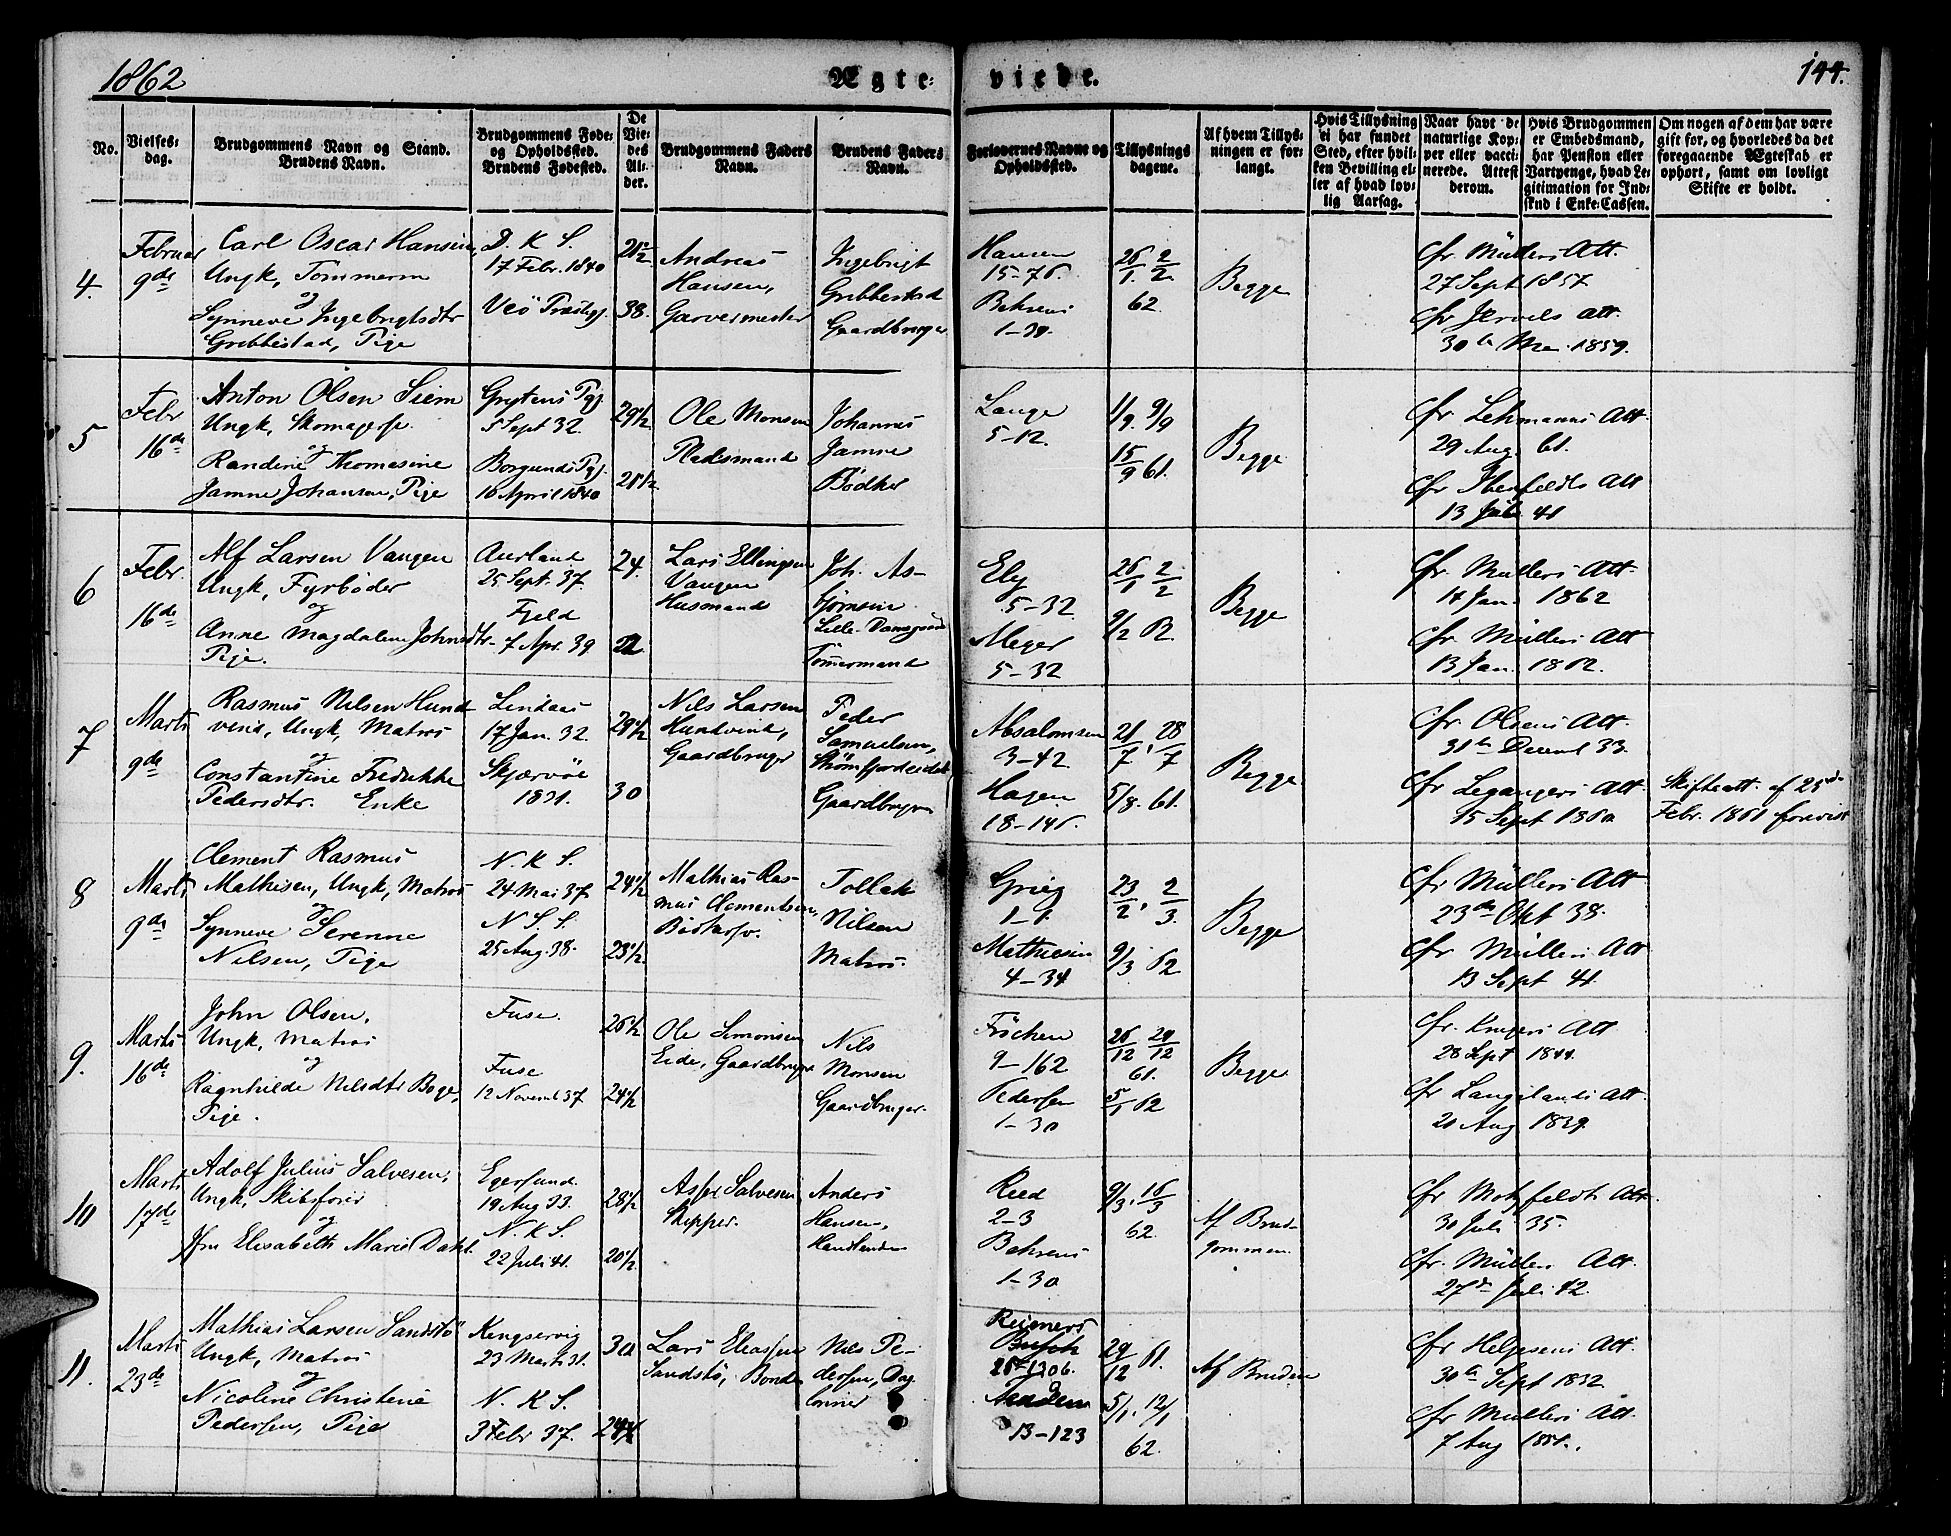 1862
Ægte-
viede.
144.
No.
Vielses-
dag.
Brudgommens Navn og Stand.
Brudens Navn.
Brudgommens Føde-
og Opholdssted.
Brudens Fødested.
De
Vie-
des
Al-
der.
Brudgommens Faders
Navn.
Brudens Faders
Navn.
Forlovernes Navne og
Opholdssted.
Tillysnings
dagene.
Af hvem Tillys-
ningen er for-
langt.
Hvis Tillysning
ei har fundet
Sted, efter hvil-
ken Bevilling el-
ler af hvad lov-
lig Aarsag.
Naar havt de
naturlige Kop-
per eller vacci-
nerede. Attest
derom.
Hvis Brudgommen
er Embedsmand,
har Pension eller
Vartpenge, hvad Le-
gitimation for Ind-
skud i Enke-Cassen.
Om nogen af dem har være
gift før, og hvorledes da det
foregaaende Ægteskab er
ophørt, samt om lovligt
Skifte er holdt.
4.
Februar
9de
Carl Oscar Hansen,
Ungk,
og
Synneve Ingebrigtsdtr
Grebbestad, Pige
D. K. S.
17 Febr. 1840
Veö Præstegj.
21 1/2
38.
Andreas
Hansen,
Garvermester
Ingebrigt
Grebbestad
Gaardbruger
Hansen
15-76.
Behrens
1-30.
26/1. 2/2.
62.
Begge
Cfr Müllers Att.
27 Sept 1857
Cfr Jervels Att.
30te Mai 1859.
5
Febr
16de
Anton Olsen Siem
Ungk, Skomagersv.
og
Randine Thomasine
Jamne Johansen, Pige
Grytens Pgj.
5 Sept 32.
Borgunds Pgj.
16 April 1840
29 1/2
21 1/2
Ole Monsen
Pladsmand
Johannes
Jamne
Bödker
Lange
5-12.
1/9. 8/9
15/9 61.
Begge
Cfr Lehmanns Att.
29 Aug. 61.
Cfr Ibenfeldts Att
13 Juli 41
6
Febr.
16de
Alf Larsen Vangen
Ungk, Fyrböder
og
Anne Magdalene Johnsdtr
Pige.
Aurland
25 Sept. 37.
Fjeld
7 Apr. 39
24.
22.
Lars Ellingsen
Vangen
Husmand
Joh. As-
björnsen
Lille Damsgaard
Tömmermand
Ely
5-32
Meyer
5-32
26/1 2/2
9/2 62.
Begge
Cfr. Müllers Att.
14 Jan. 1862
Cfr. Müllers Att
13 Jan. 1862.
7
Marts
9de
Rasmus Nilsen Hund
vend, Ungk, Matros
og
Constantine Fredrikke
Pedersdtr. Enke
Lindaas
17 Jan. 32.
Skjærvöe
1831.
29 1/2
30
Nils Larsen
Hundvind,
Gaardbruger
Peder
Samuelsen,
Gaardbruger
Absalonsen
3-42
Hagen
18-146.
21/7, 28/7
5/8. 61.
Begge
Cfr Olsens Att.
31te Decemb 33.
Cfr Legangers Att.
15 Sept 1860
Skifteatt. af 25de
Febr. 1861 forevist
8
Marts
9de
Clement Rasmus
Mathisen, Ungk, Matros
og
Synneve Serenne
Nilsen, Pige
N. K. S.
24 Mai 37
N. S. S.
25 Aug. 38.
24 1/2
23 1/2.
Mathias Ras-
mus Clementsen,
Tollak
Nilsen
Matros.
Grieg
1-1
Mathiesen
4-34
23/2, 2/3.
9/3 62
Begge
Cfr Müllers Att
23de Okt 38.
Cfr Müllers Att
13 Sept 41.
9.
Marts
16de
John Olsen,
Ungk, Matros
og
Ragnhilde Nilsdtr Boge,
Pige.
Fuse.
Fuse
12 Novemb 37
26 1/2
24 1/2
Ole Simonsen
Eide, Gaardbruger
Nils
Monsen
Gaardbruger.
Fröchen
9-162
Pedersen
1-30
26/12 29/12
61.
5/1 62
Begge
Cfr. Krugers Att
28 Sept 1844.
Cfr Langelands Att.
20 Aug 1839.
10
Marts
17de
Adolf Julius Salvesen,
Ungk, Skibsförer
og
Jfr Elisabeth Marie Dahl.
Egersund.
19 Aug 33.
N. K. S.
22 Juli 41.
28 1/2
20 1/2.
Asser Salvesen
Skipper.
Anders
Hansen,
Handlende
Reed
2-3
Behrens
1-30
9/3, 16/3
62.
Af Brud-
gommen.
Cfr Motzfeldts Att.
30 Juli 35.
Cfr. Müllers Att.
27de Juli 42.
11.
Marts
23de
Mathias Larsen Sandstö
Ungk, Matros
og
Nicoline Christine
Pedersen, Pige
Kingservig
23 Marts 31.
N. K. S.
3 Febr 37.
30
24 1/2
Lars Eliassen
Sandstö, Bonde
Nils Pe-
dersen, Dag
lönner
Reimers
1306.
13-123
29/12 61.
5/1, 12/1
62.
Af Bruden
Cfr Helgesens Att.
30te Sept 1832
Cfr Müllers Att.
7 Aug 1851.